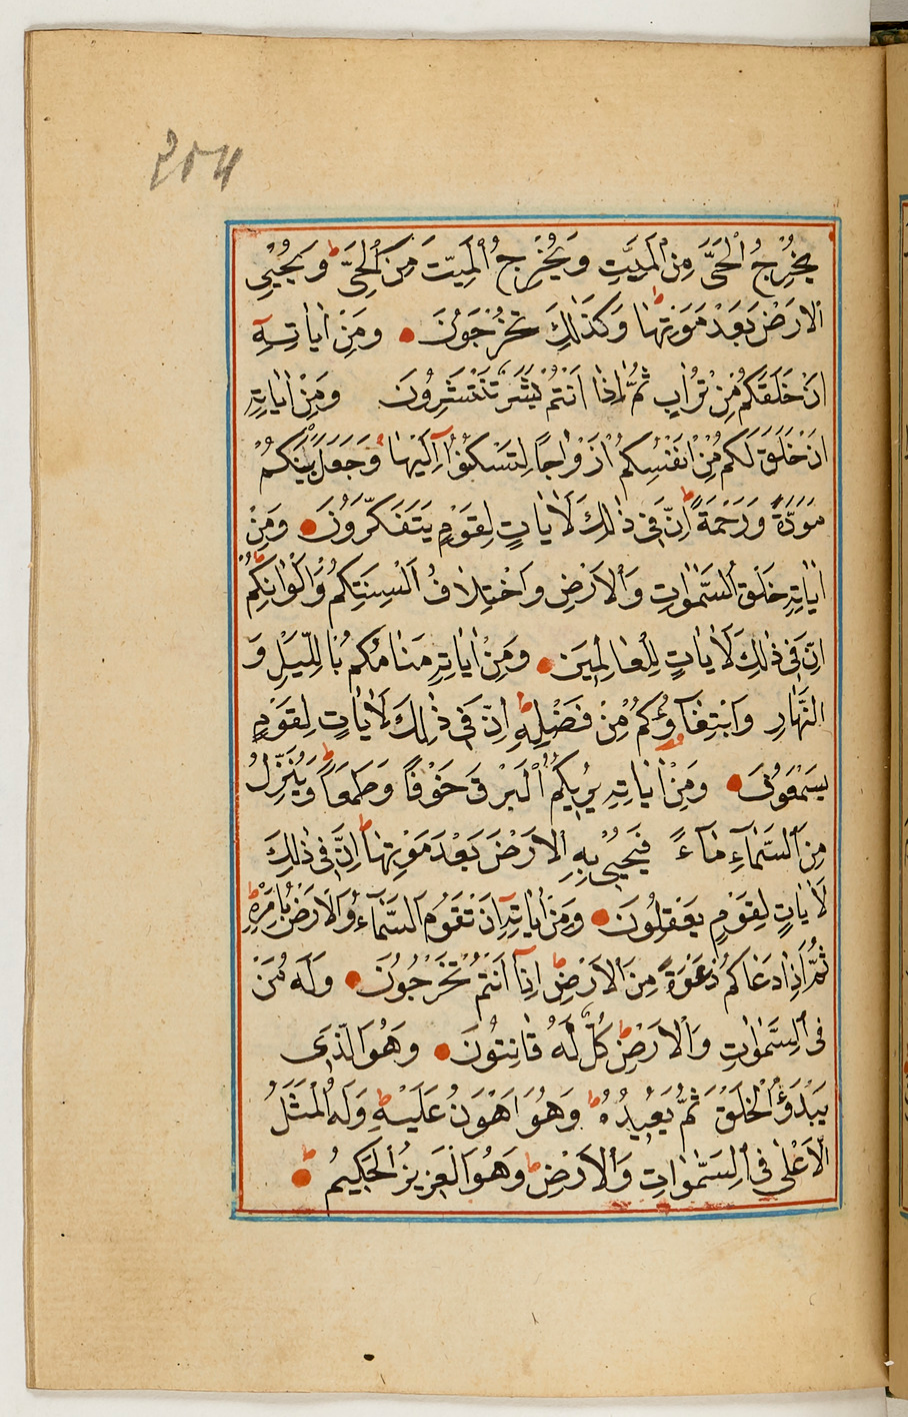 ٢٥٤
يُخْرِجُ الْحَىَّ مِنَ الْمَيِّتِ وَيُخْرِجُ الْمَيِّتَ مِنَ الْحَىِّ ط وَيُحْيِى
الْاَرْضَ بَعْدَ مَوْتِهَا ط وَكَذٰلِكَ تُخْرَجُونَ ● وَمِنْ اٰيَاتِهِٓ
اَنْ خَلَقَكُمْ مِنْ تُرَابٍ ثُمَّ اِذَا اَنْتُمْ بَشَرٌ تَنْتَشِرُونَ وَمِنْ اٰيَاتِهِ
اَنْ خَلَقَ لَكُمْ مِنْ اَنْفُسِكُمْ اَزْوَاجًا لِتَسْكُنُوٓا اِلَيْهَا وَجَعَلَ بَيْنَكُمْ
مَوَدَّةً وَرَحْمَةً ط اِنَّ فِى ذٰلِكَ لَاٰيَاتٍ لِقَوْمٍ يَتَفَكَّرُونَ ● وَمِنْ
اٰيَاتِهِ خَلْقُ السَّمٰوَاتِ وَالْاَرْضِ وَاخْتِلَافُ اَلْسِنَتِكُمْ وَاَلْوَانِكُمْ ط
اِنَّ فِى ذٰلِكَ لَاٰيَاتٍ لِلْعَالِمِينَ ● وَمِنْ اٰيَاتِهِ مَنَامُكُمْ بِاللَّيْلِ وَ
النَّهَارِ وَابْتِغَاۤؤُكُمْ مِنْ فَضْلِهِ ط اِنَّ فِى ذٰلِكَ لَاٰيَاتٍ لِقَوْمٍ
يَسْمَعُونَ ● وَمِنْ اٰيَاتِهِ يُرِيكُمُ الْبَرْقَ خَوْفًا وَطَمَعًا ط وَيُنَزِّلُ
مِنَ السَّمَاۤءِ مَاۤءً فَيُحْيِى بِهِ الْاَرْضَ بَعْدَ مَوْتِهَا ط اِنَّ فِى ذٰلِكَ
لَاٰيَاتٍ لِقَوْمٍ يَعْقِلُونَ ● وَمِنْ اٰيَاتِهِٓ اَنْ تَقُومَ السَّمَاۤءُ وَالْاَرْضُ بِاَمْرِهِ ط
ثُمَّ اِذَا دَعَاكُمْ دَعْوَةً مِنَ الْاَرْضِ ط اِذَآ اَنْتُمْ تَخْرُجُونَ ● وَلَهُ مَنْ
فِى السَّمٰوَاتِ وَالْاَرْضِ ط كُلٌّ لَهُ قَانِتُونَ ● وَهُوَ الَّذِى
يَبْدَؤُا الْخَلْقَ ثُمَّ يُعِيدُهُ ط وَهُوَ اَهْوَنُ عَلَيْهِ ط وَلَهُ الْمَثَلُ
الْاَعْلٰى فِى السَّمٰوَاتِ وَالْاَرْضِ ط وَهُوَ الْعَزِيزُ الْحَكِيمُ ● ط